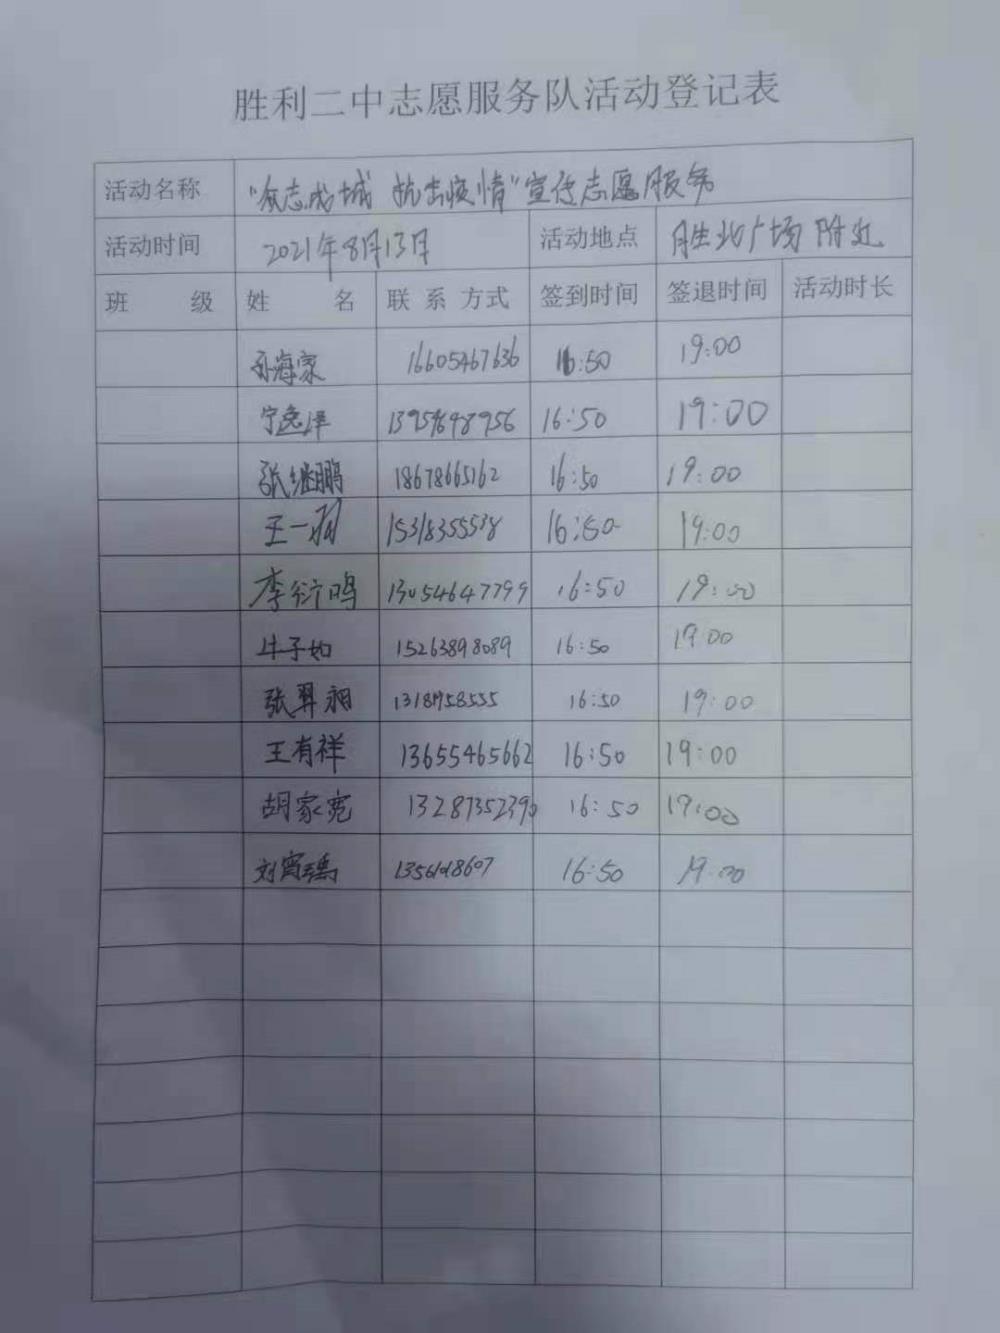 胜利二中志愿服务队活动登记表
活动名称 “众志成城 抗击疫情”宣传志愿服务
活动时间 2021年8月13日 活动地点 胜北广场附近
班 级 姓 名 联系方式 签到时间 签退时间 活动时长
孙海家 16605467636 16:50 19:00
宁逸洋 16:50 19:00
张继鹏 18678665162 16:50 19:00
王一 15318355538 16:50 19:00
李衍鸣 13054647799 16:50 19:00
牛子如 15263898089 16:50 19:00
张羿翔 16:50 19:00
王有祥 13655465662 16:50 19:00
胡家宽 13287352390 16:50 19:00
刘宵瑀 16:50 19:00